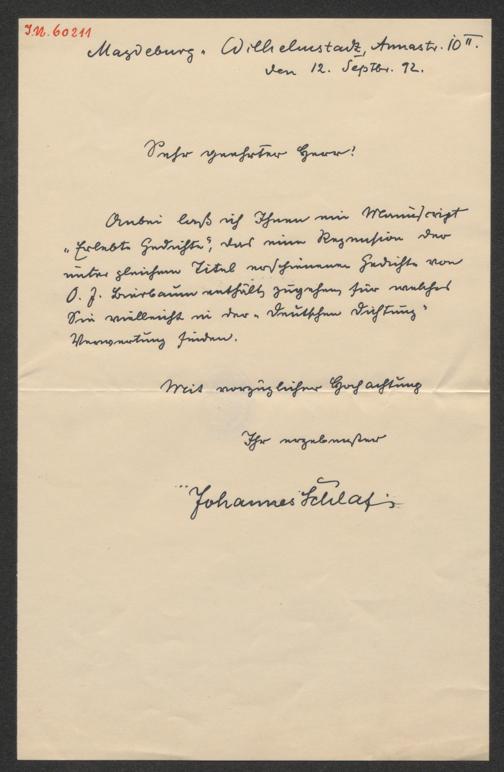 I.N. 60211
Magdeburg-Wilhelmstadt, Annastr. 10 II.
den 12. Septbr. 92.
Sehr geehrter Herr!
Anbei lass ich Ihnen ein Manuscript
„Erlebte Gedichte“, das eine Rezension der
unter gleichem Titel erschienenen Gedichte von
O. J. Bierbaum enthält, zugehen, für welches
Sie vielleicht in der „Deutschen Dichtung“
Verwertung finden.
Mit vorzüglicher Hochachtung
Ihr ergebenster
Johannes Schlaf